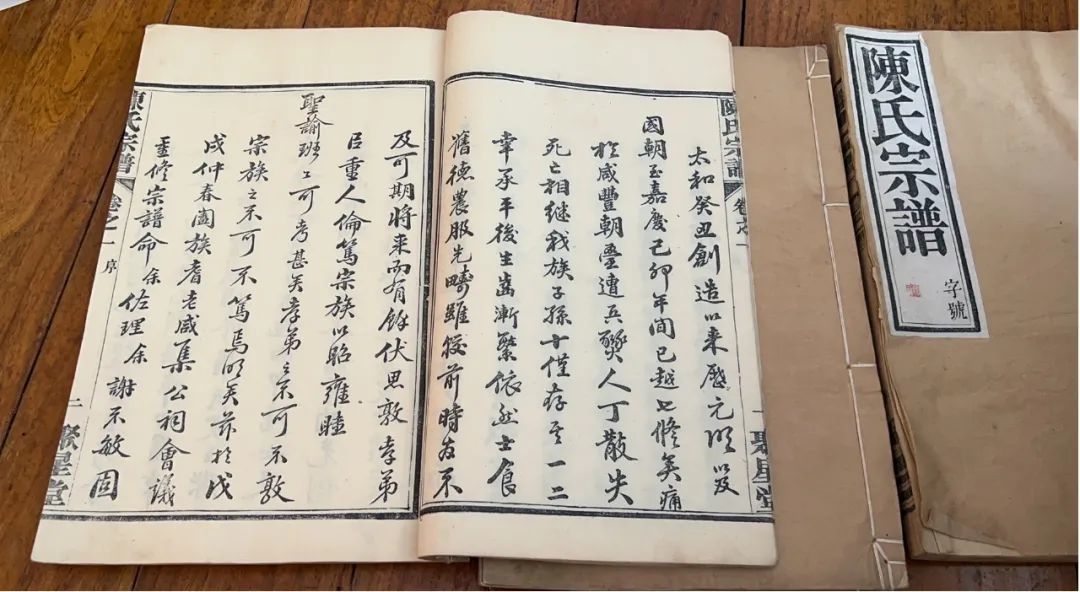 陳氏宗譜
字號
陳氏宗譜
卷之一
一
聚星堂
太和癸丑創造以來歷元明以及
國朝至嘉慶己卯年間已越七修矣痛
於咸豐朝疊遭兵燹人丁散失
死亡相繼我族子孫十僅存其一二
幸承平後生齒漸繁依然士食
舊德農服先疇雖較前時為不
及可期將來而有餘伏思敦孝弟
以重人倫篤宗族以昭雍睦
聖諭班〻可考甚矣孝弟之不可不敦
宗族之不可不篤焉明矣茲於戊
戌仲春闔族耆老咸集公祠會議
重修宗譜命余佐理余謝不敏固
陳氏宗譜
卷之一
序
二
聚星堂